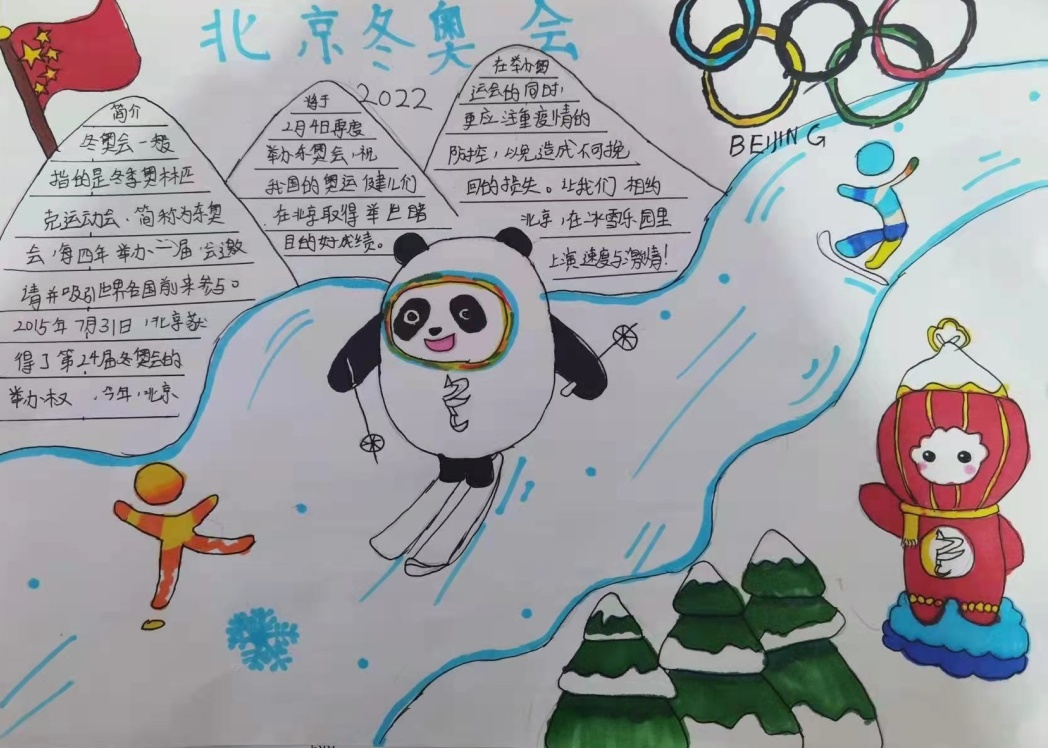 北京冬奥会
2022
简介
冬奥会一般
指的是冬季奥林匹
克运动会、简称为冬奥
会,每四年举办一届,会邀
请并吸引世界各国前来参与。
2015年7月31日,北京获
得了第24届冬奥会的
举办权,今年,北京
将于
2月4日再度
举办冬奥会,祝
我国的奥运健儿们
在北京取得举世瞩
目的好成绩。
在举办奥
运会的同时,
更应注重疫情的
防控,以免造成不可挽
回的损失。让我们相约
北京,在冰雪乐园里
上演速度与激情!
BEIJING